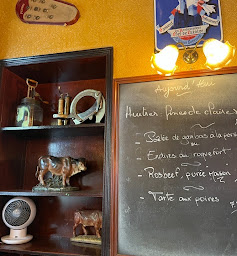 Aujourd'hui
Huîtres Fines de Claire
- Poêlée de gambas à la
ou
- Endives au roquefort
- Rosbeef, purée maison
- Tarte aux poires